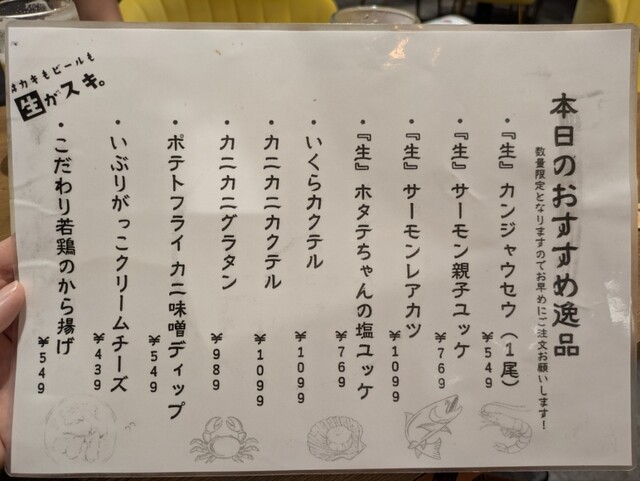 本日のおすすめ逸品
数量限定となりますのでお早めにご注文お願いします!
・『生』カンジャウセウ（1尾） ¥549
・『生』サーモン親子ユッケ ¥769
・『生』サーモンレアカツ ¥1099
・『生』ホタテちゃんの塩ユッケ ¥769
・いくらカクテル ¥1099
・カニカニカクテル ¥1099
・カニカニグラタン ¥989
・ポテトフライ カニ味噌ディップ ¥549
・いぶりがっこクリームチーズ ¥439
・こだわり若鶏のから揚げ ¥549
カキもビールも
生がスキ。